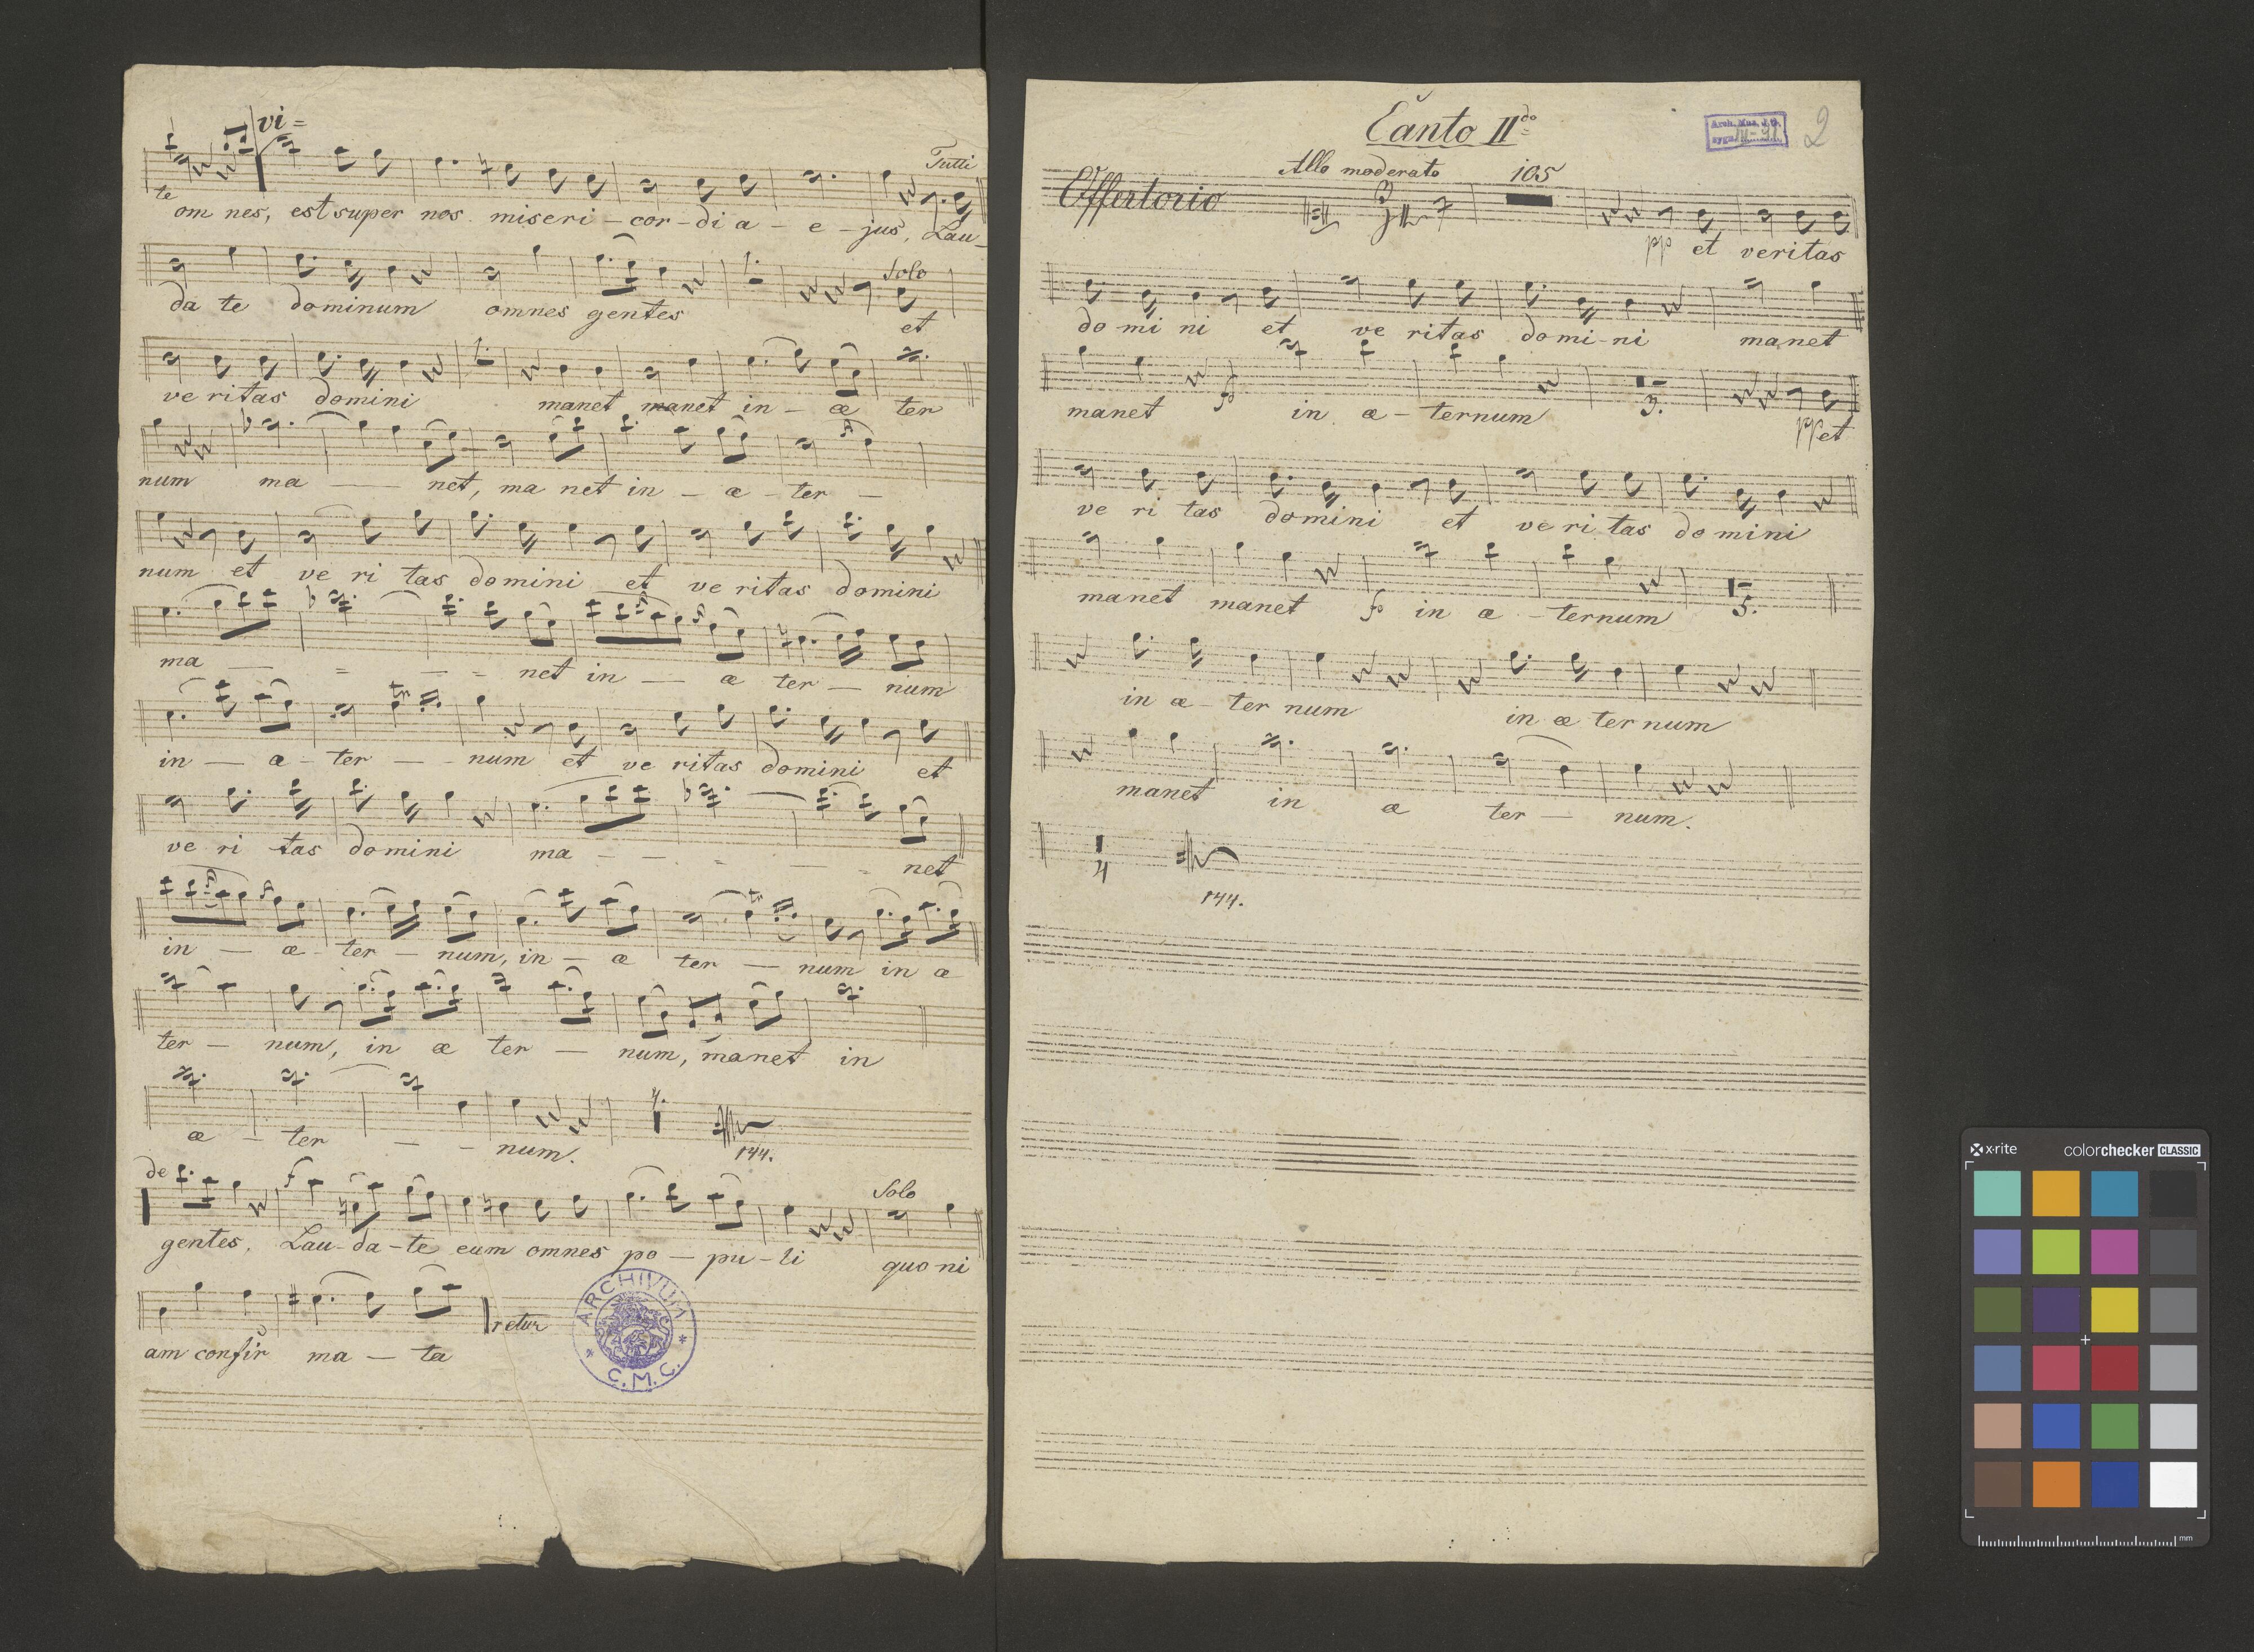 vi=
Tutti
te
om nes, est super nos miseri - cor - di a - e - jus, Lau -
Solo
da te dominum omnes gentes et
ve ritas domini manet manet in - æ ter
num ma — — net, ma net in - æ - ter —
num et ve ri tas domini et ve ritas domini
ma — = — - net in — æ ter — num
tr
in — æ - ter — - num et ve ritas domini et
ve ri tas domini ma - - - — - net
tr
in — æ - ter — num, in — æ ter — num in æ
ter — num, in æ ter — num, manet in
æ — ter — - num.
144.
de
Solo
gentes, Lau - da - te eum omnes po — pu - li quo ni
retur
am confir ma — ta
ARCHIVUM
C.M.C.
Canto II do
Arch. Muz. J.G.
sygn.
2
Allo moderato 105
Offertorio
pp et veritas
do mi ni et ve ritas domi - ni manet
manet fo in æ - ternum 3. pp et
ve ri tas domini et ve ri tas do mini
manet manet fo in æ - ternum 5.
in æ - ter num in æ ter num
manet in æ ter — num.
4
144.
x-rite colorchecker CLASSIC
mm